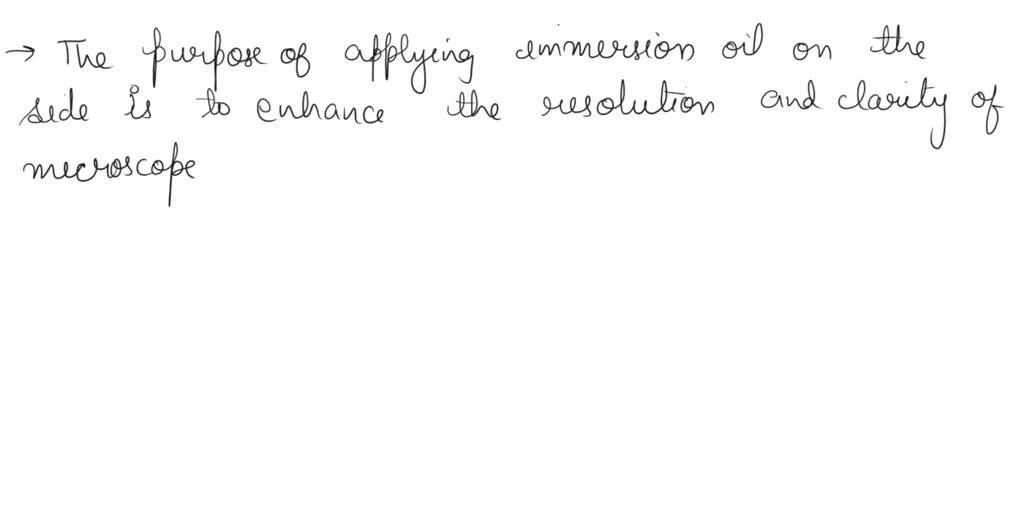 → The purpose of applying immersion oil on the
side is to enhance the resolution and clarity of
mecroscope